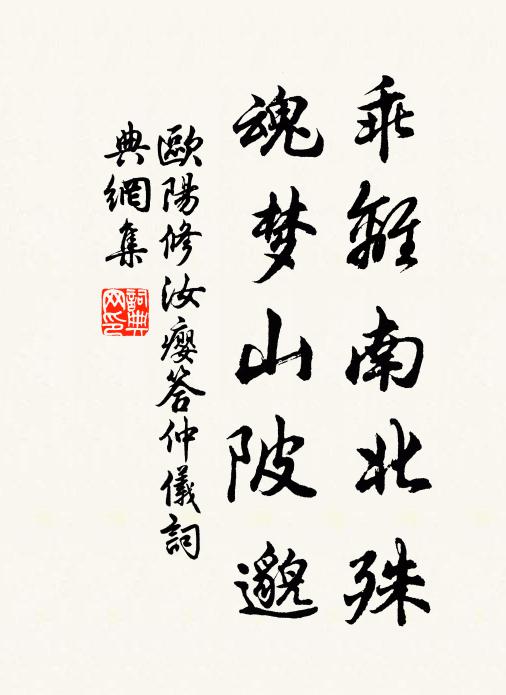 乖離南北殊
魂梦山陂邈
歐陽修汝癭答仲儀詞
典網集
詞典网印